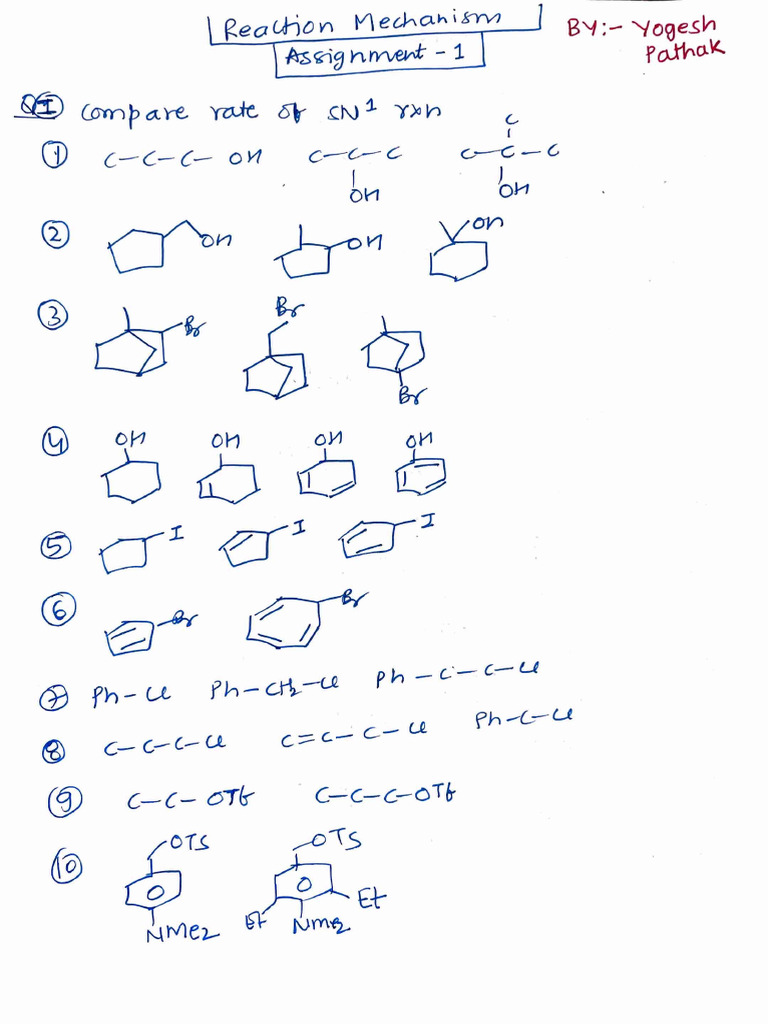 Reaction Mechanism
Assignment - 1
BY:- Yogesh
Pathak
Q I Compare rate of SN1 rxn
① C-C-C-OH C-C-C C-C-C
C
OH OH
② OH OH OH
③ Br Br Br
④ OH OH OH OH
⑤ I I I
⑥ Br Br
⑦ Ph-Cl Ph-CH2-Cl Ph-C-C-Cl
⑧ C-C-C-Cl C=C-C-Cl Ph-C-Cl
⑨ C-C-OTf C-C-C-OTf
⑩ OTS OTS
NMe2 Et NMe2 Et